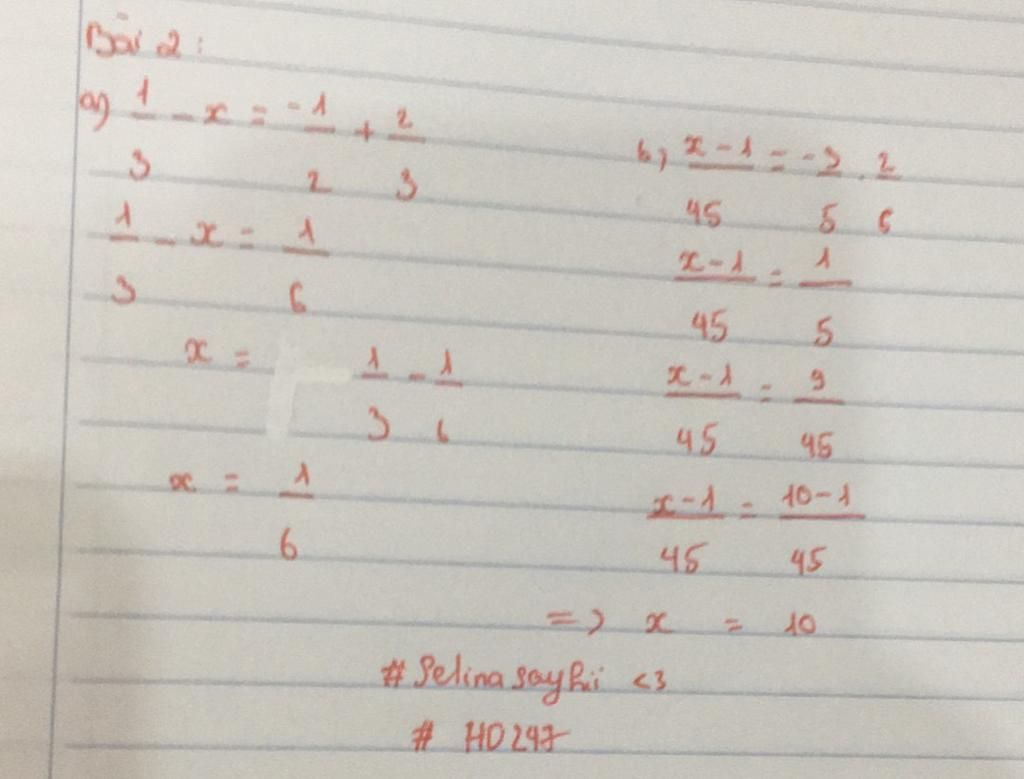 Bài 2:
a) 1/3 - x = -1/2 + 2/3
1/3 - x = 1/6
x = 1/3 - 1/6
x = 1/6
b, x-1/45 = -3/5 . 2/6
x-1/45 = 1/5
x-1/45 = 9/45
x-1/45 = 10-1/45
=> x = 10
#Selinasayhii <3
# HD247